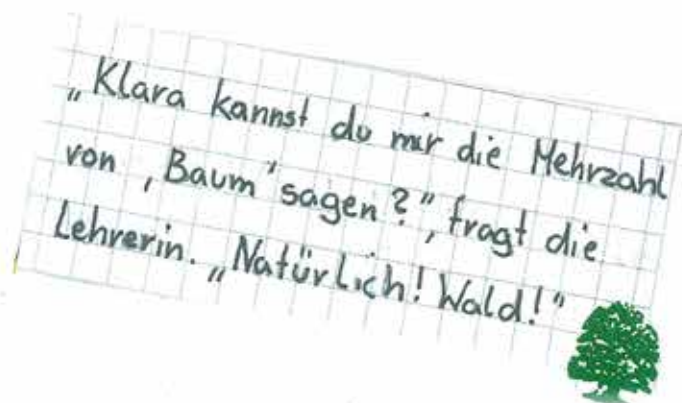 „Klara kannst du mir die Mehrzahl
von ‚Baum‘ sagen?“, fragt die
Lehrerin. „Natürlich! Wald!“